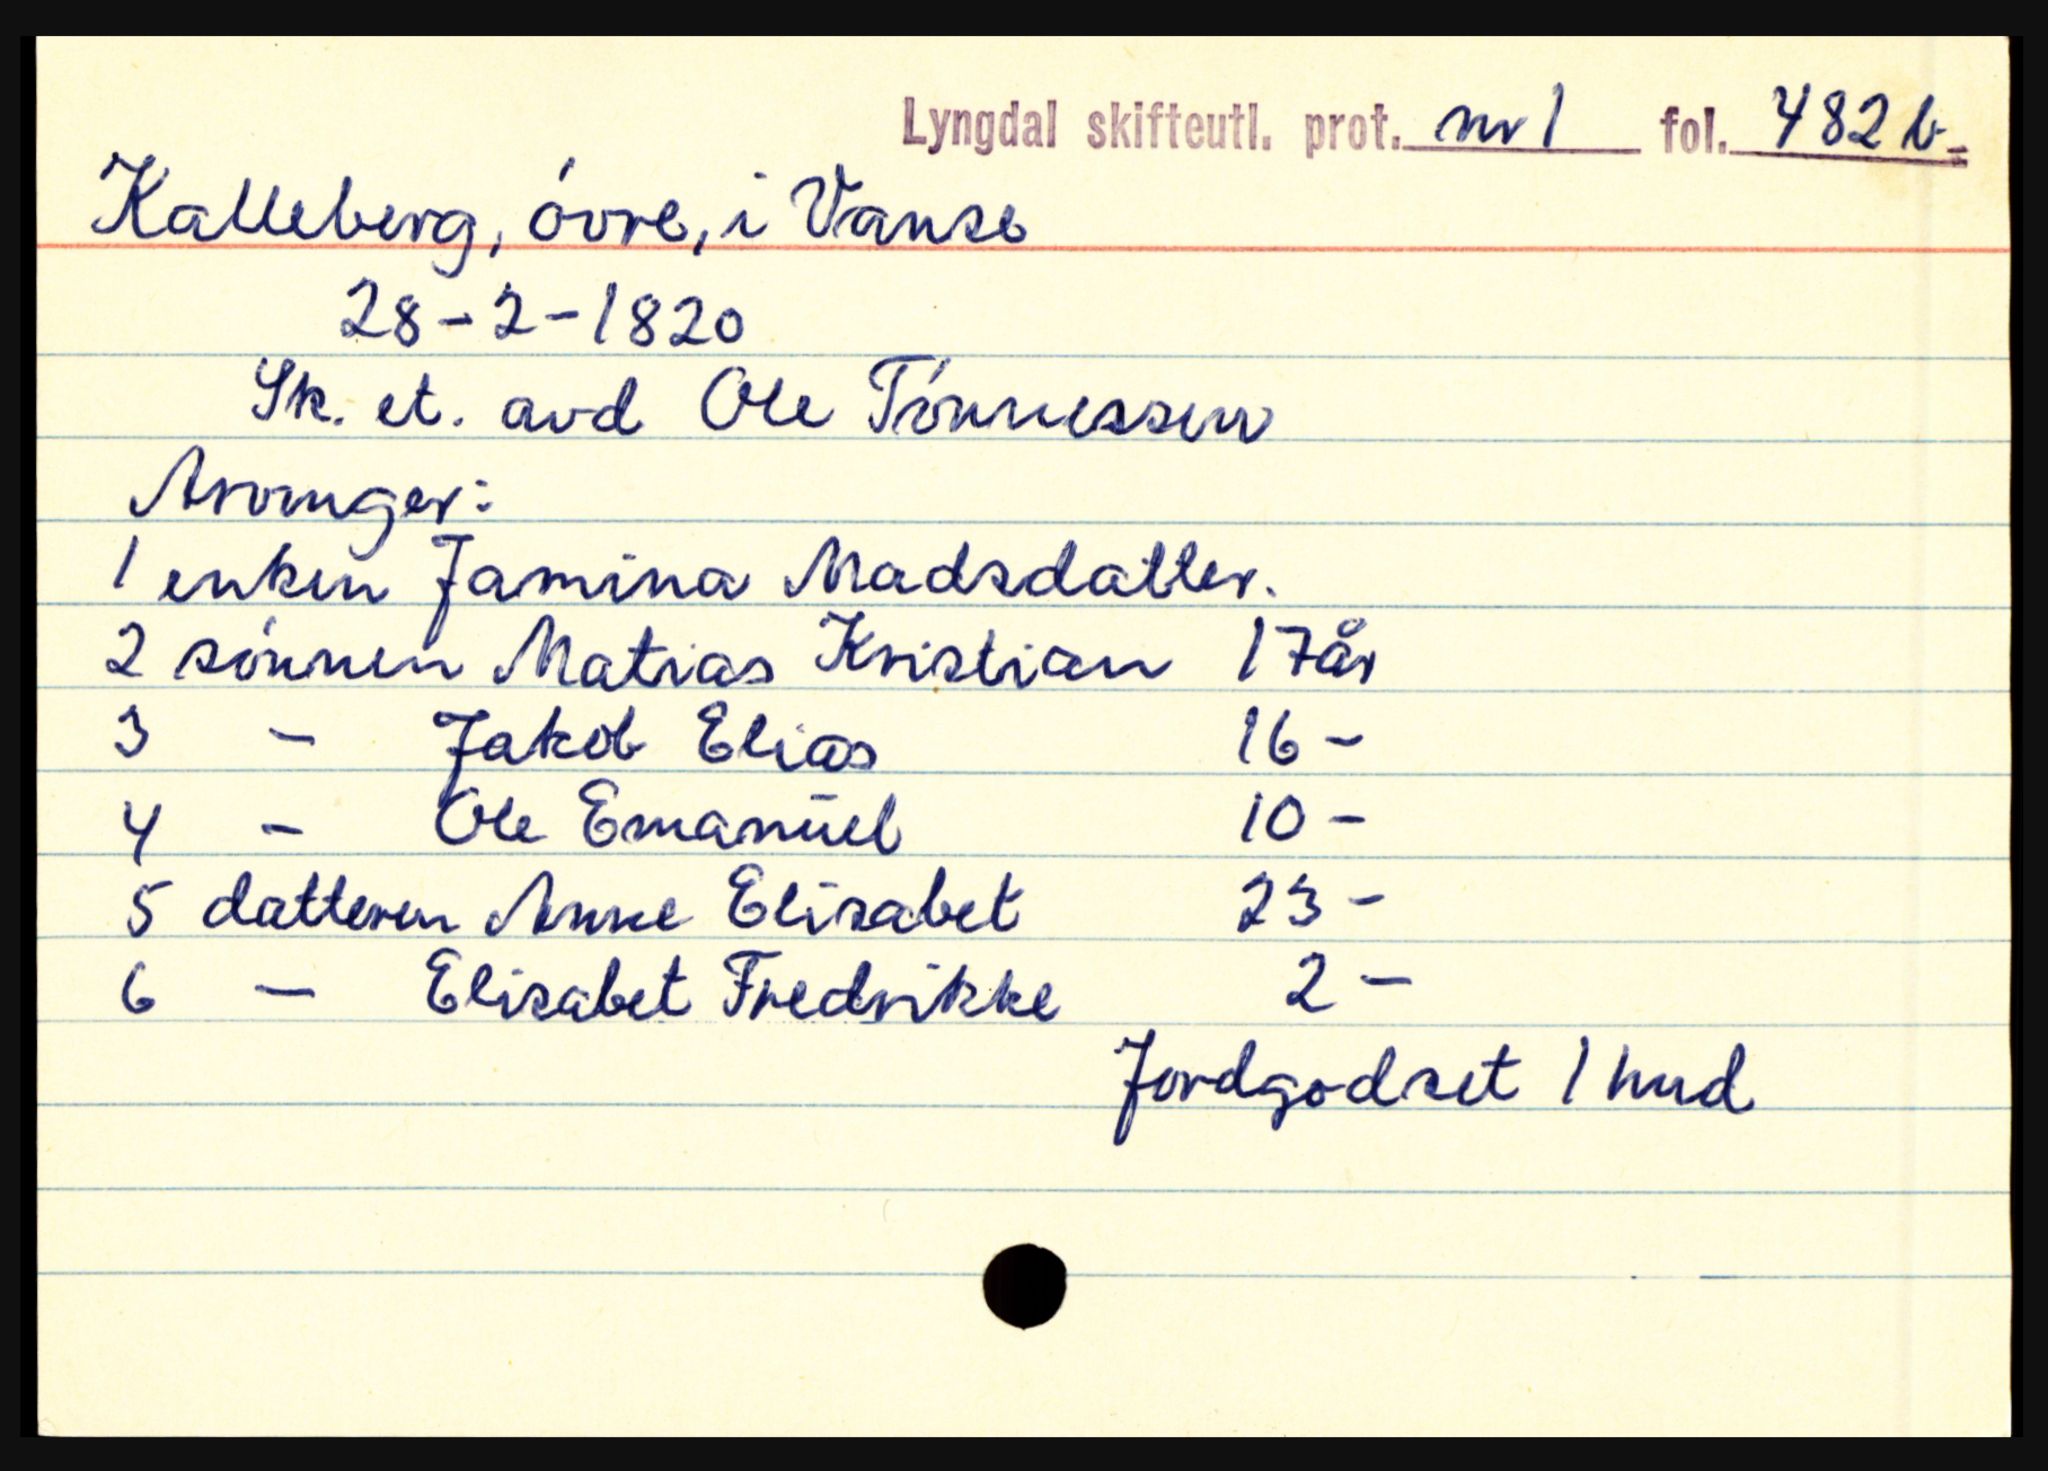 Lyngdal skifteutl. prot. nr 1 fol. 482 b.
Kalleberg, óvre, i Vanse
28-2-1820
Sk. et. avd Ole Tónnessen
Arvinger:
1 enken Jamina Madsdatter.
2 sónnen Matias Kristian 17 år
3 - Jakob Elias 16 -
4 - Ole Emanuel 10 -
5 datteren Anne Elisabet 23 -
6 - Elisabet Fredrikke 2 -
Jordgodset 1 hud